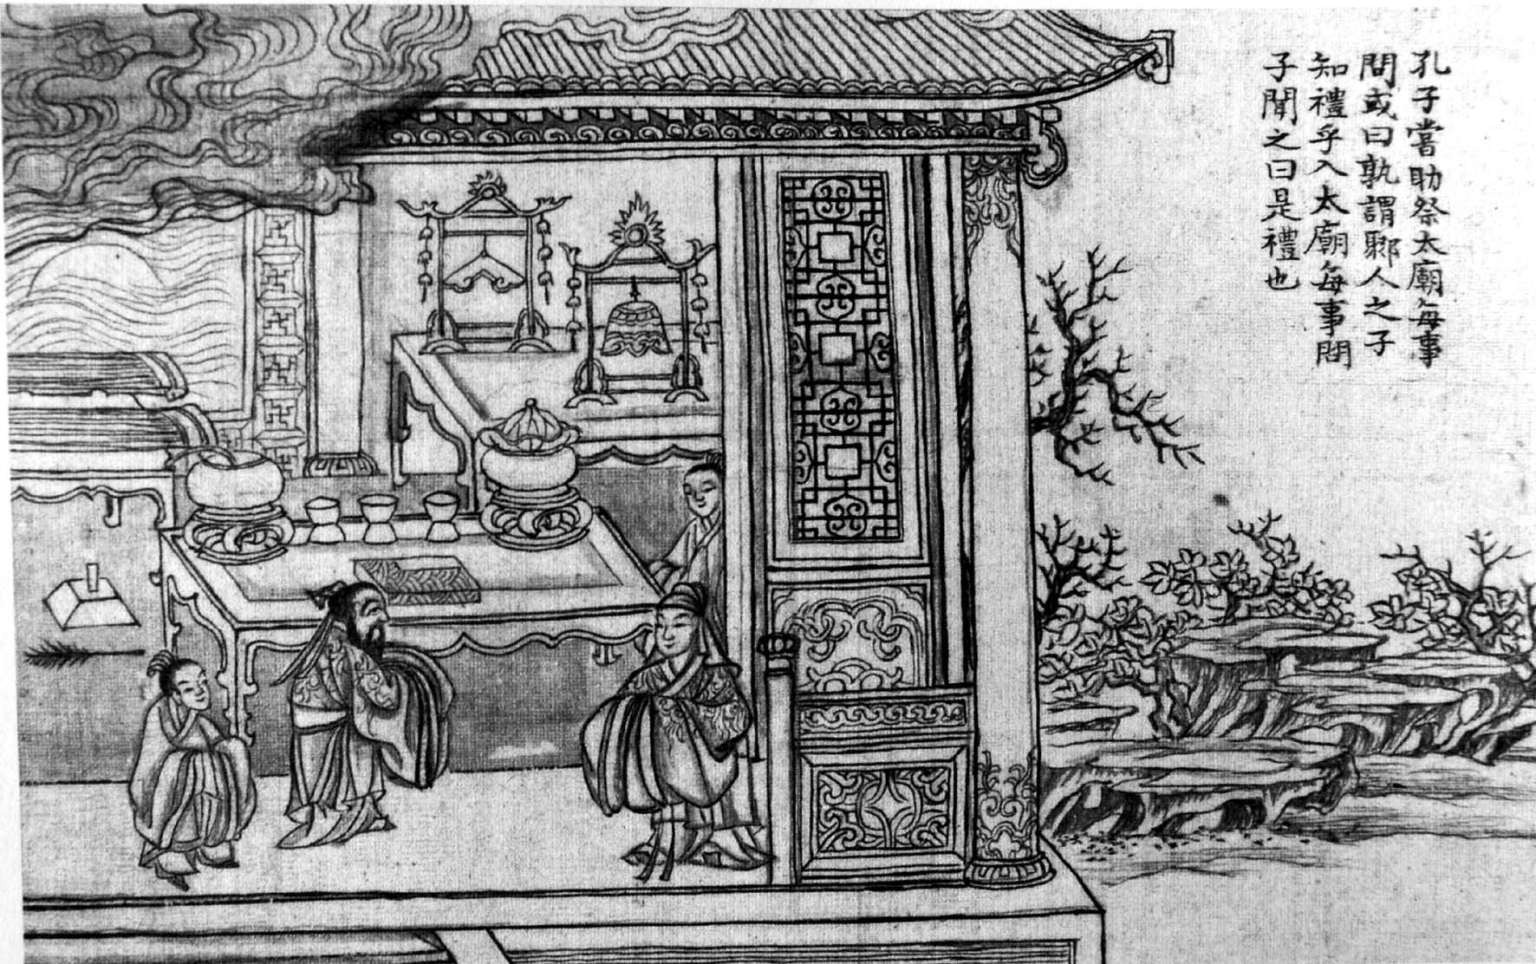 孔子嘗助祭太廟每事
問或曰孰謂鄹人之子
知禮乎入太廟每事問
子聞之曰是禮也